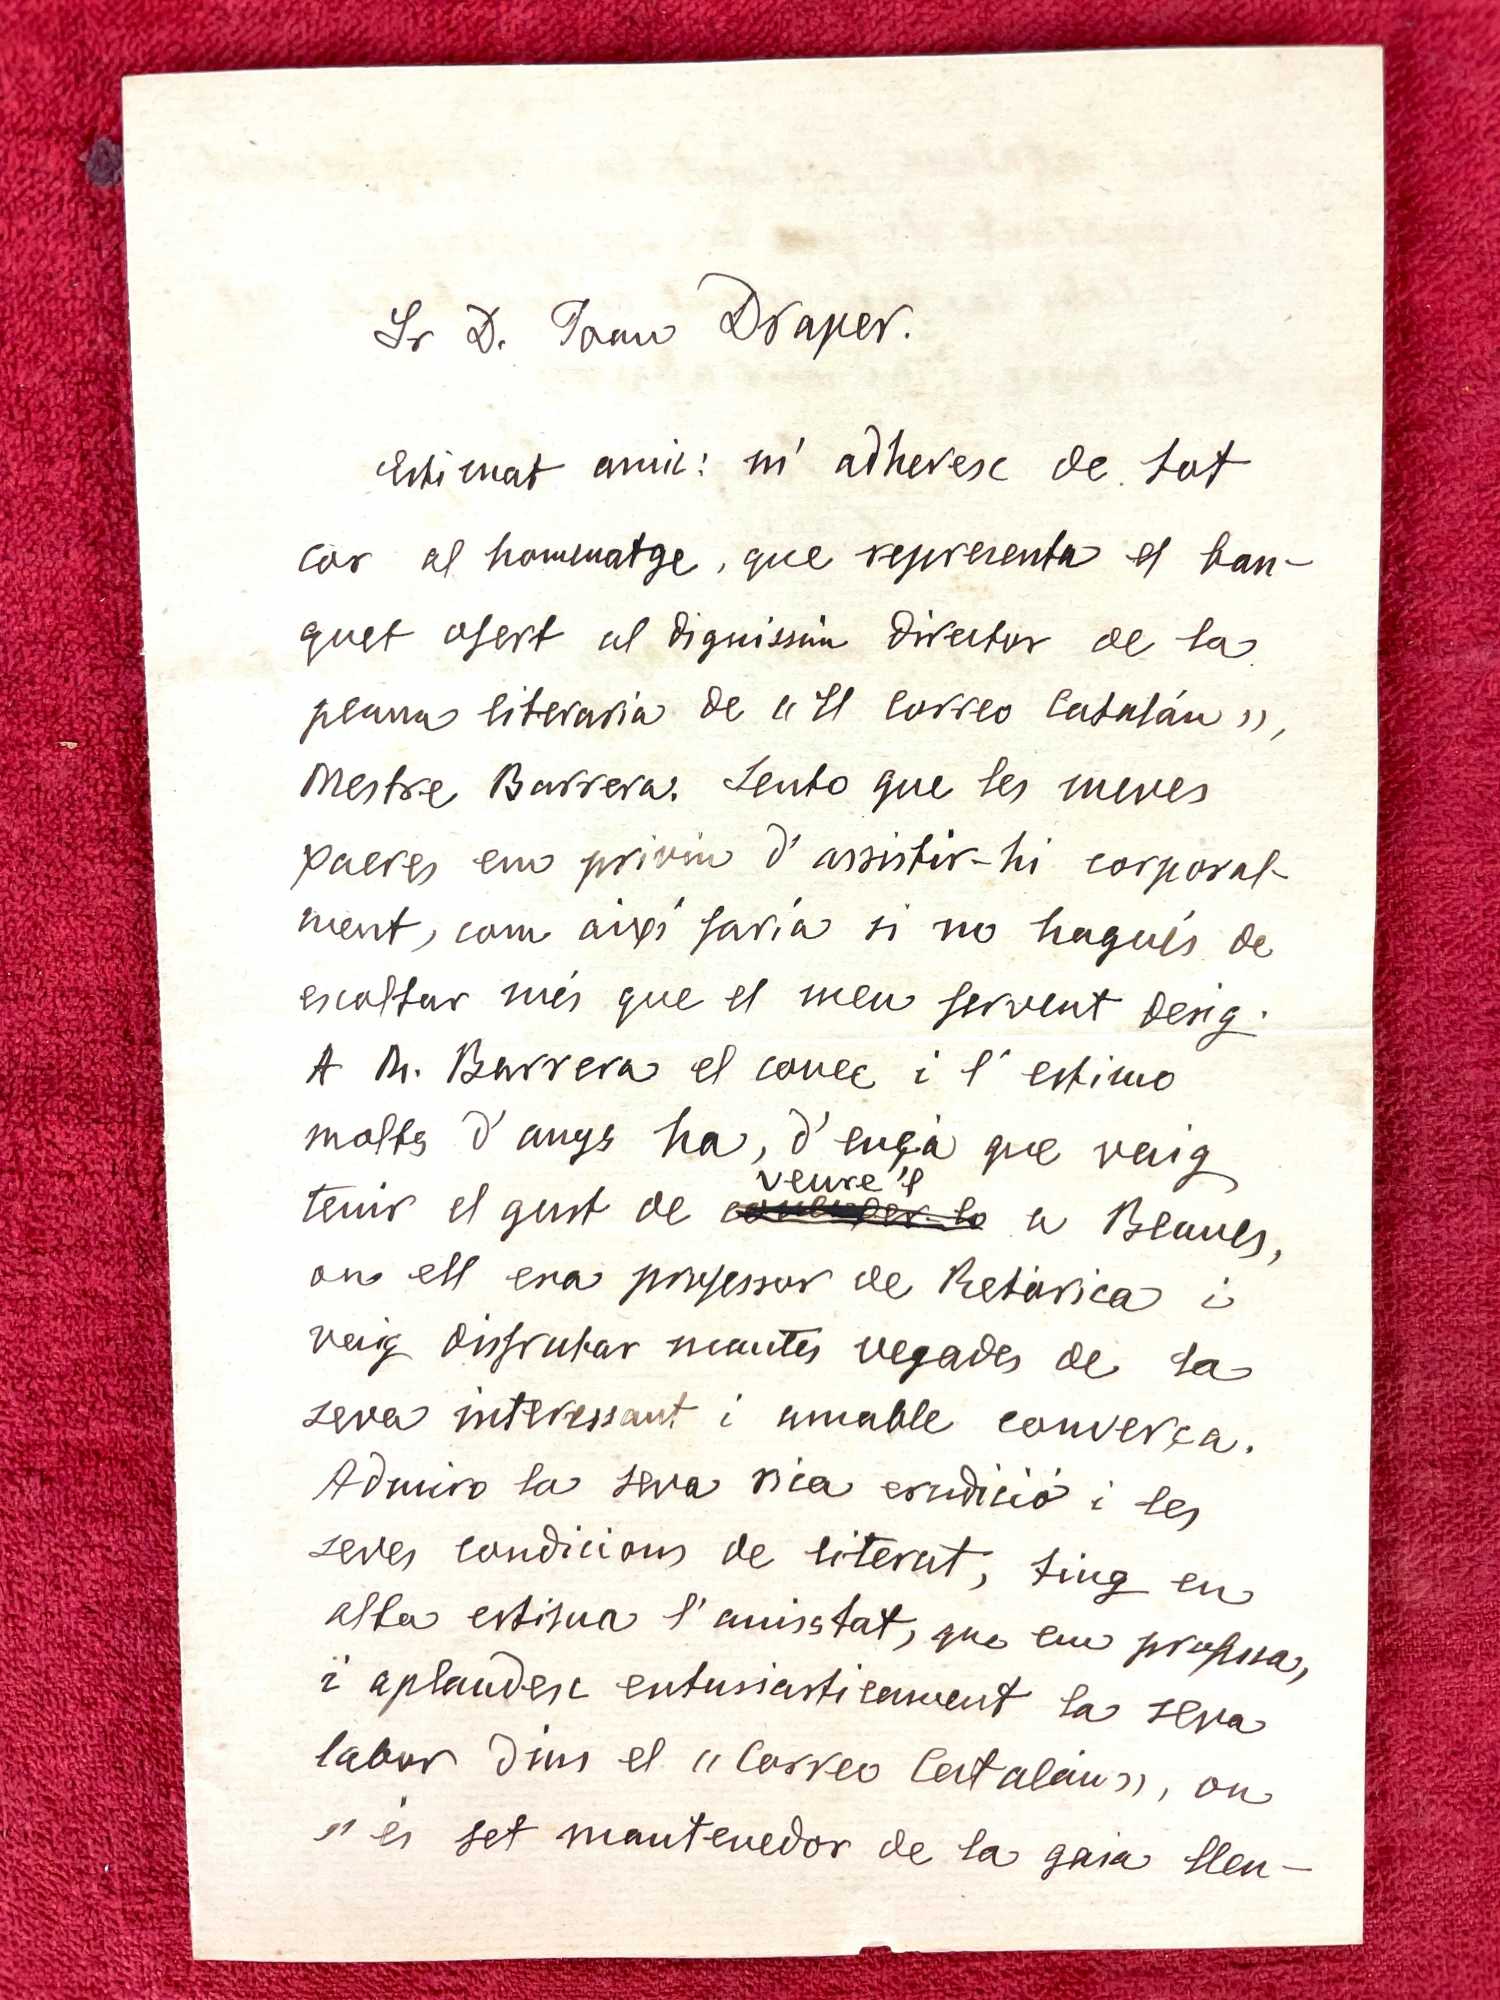 Sr D. Joan Draper.
Estimat amic: m' adheresc de tot
cor al hommatge, que representa el ban-
quet ofert al digníssim director de la
plana literaria de «El Correo Catalán»,
Mestre Barrera. Sento que les meves
xacres em privin d' assistir-hi corporal-
ment, com aixís faría si no hagués de
escoltar més que el meu fervent desig.
A M. Barrera el conec i l' estimo
molts d' anys ha, d' ençà que vaig
tenir el gust de veure 'l a Blanes,
on ell era professor de Retòrica i
vaig disfrutar mantes vegades de la
seva interessant i amable converça.
Admiro la seva rica erudició i les
seves condicions de literat, ting en
alta estima l' amistat, que em professa,
i aplaudesc entusiasticament la seva
labor dins el «Correo Catalán», on
s' és fet mantenedor de la gaia llen-